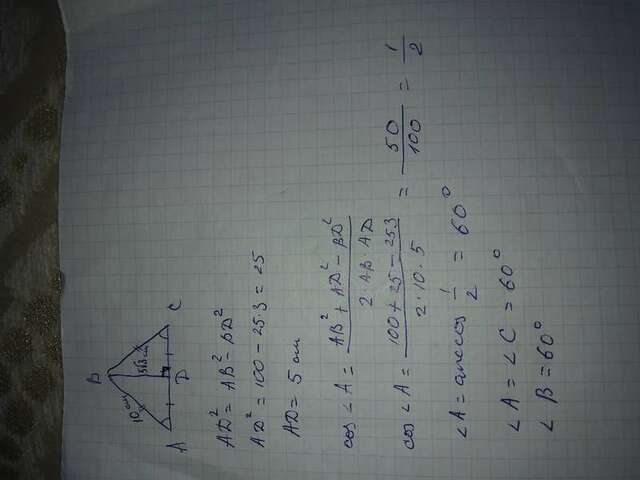 B
10 cm
5√3 cm
A D C
AD² = AB² - BD²
AD² = 100 - 25·3 = 25
AD = 5 cm
cos ∠A = (AB² + AD² - BD²) / (2·AB·AD)
cos ∠A = (100 + 25 - 253) / (2·10·5) = 50/100 = 1/2
∠A = arccos 1/2 = 60°
∠A = ∠C = 60°
∠B = 60°